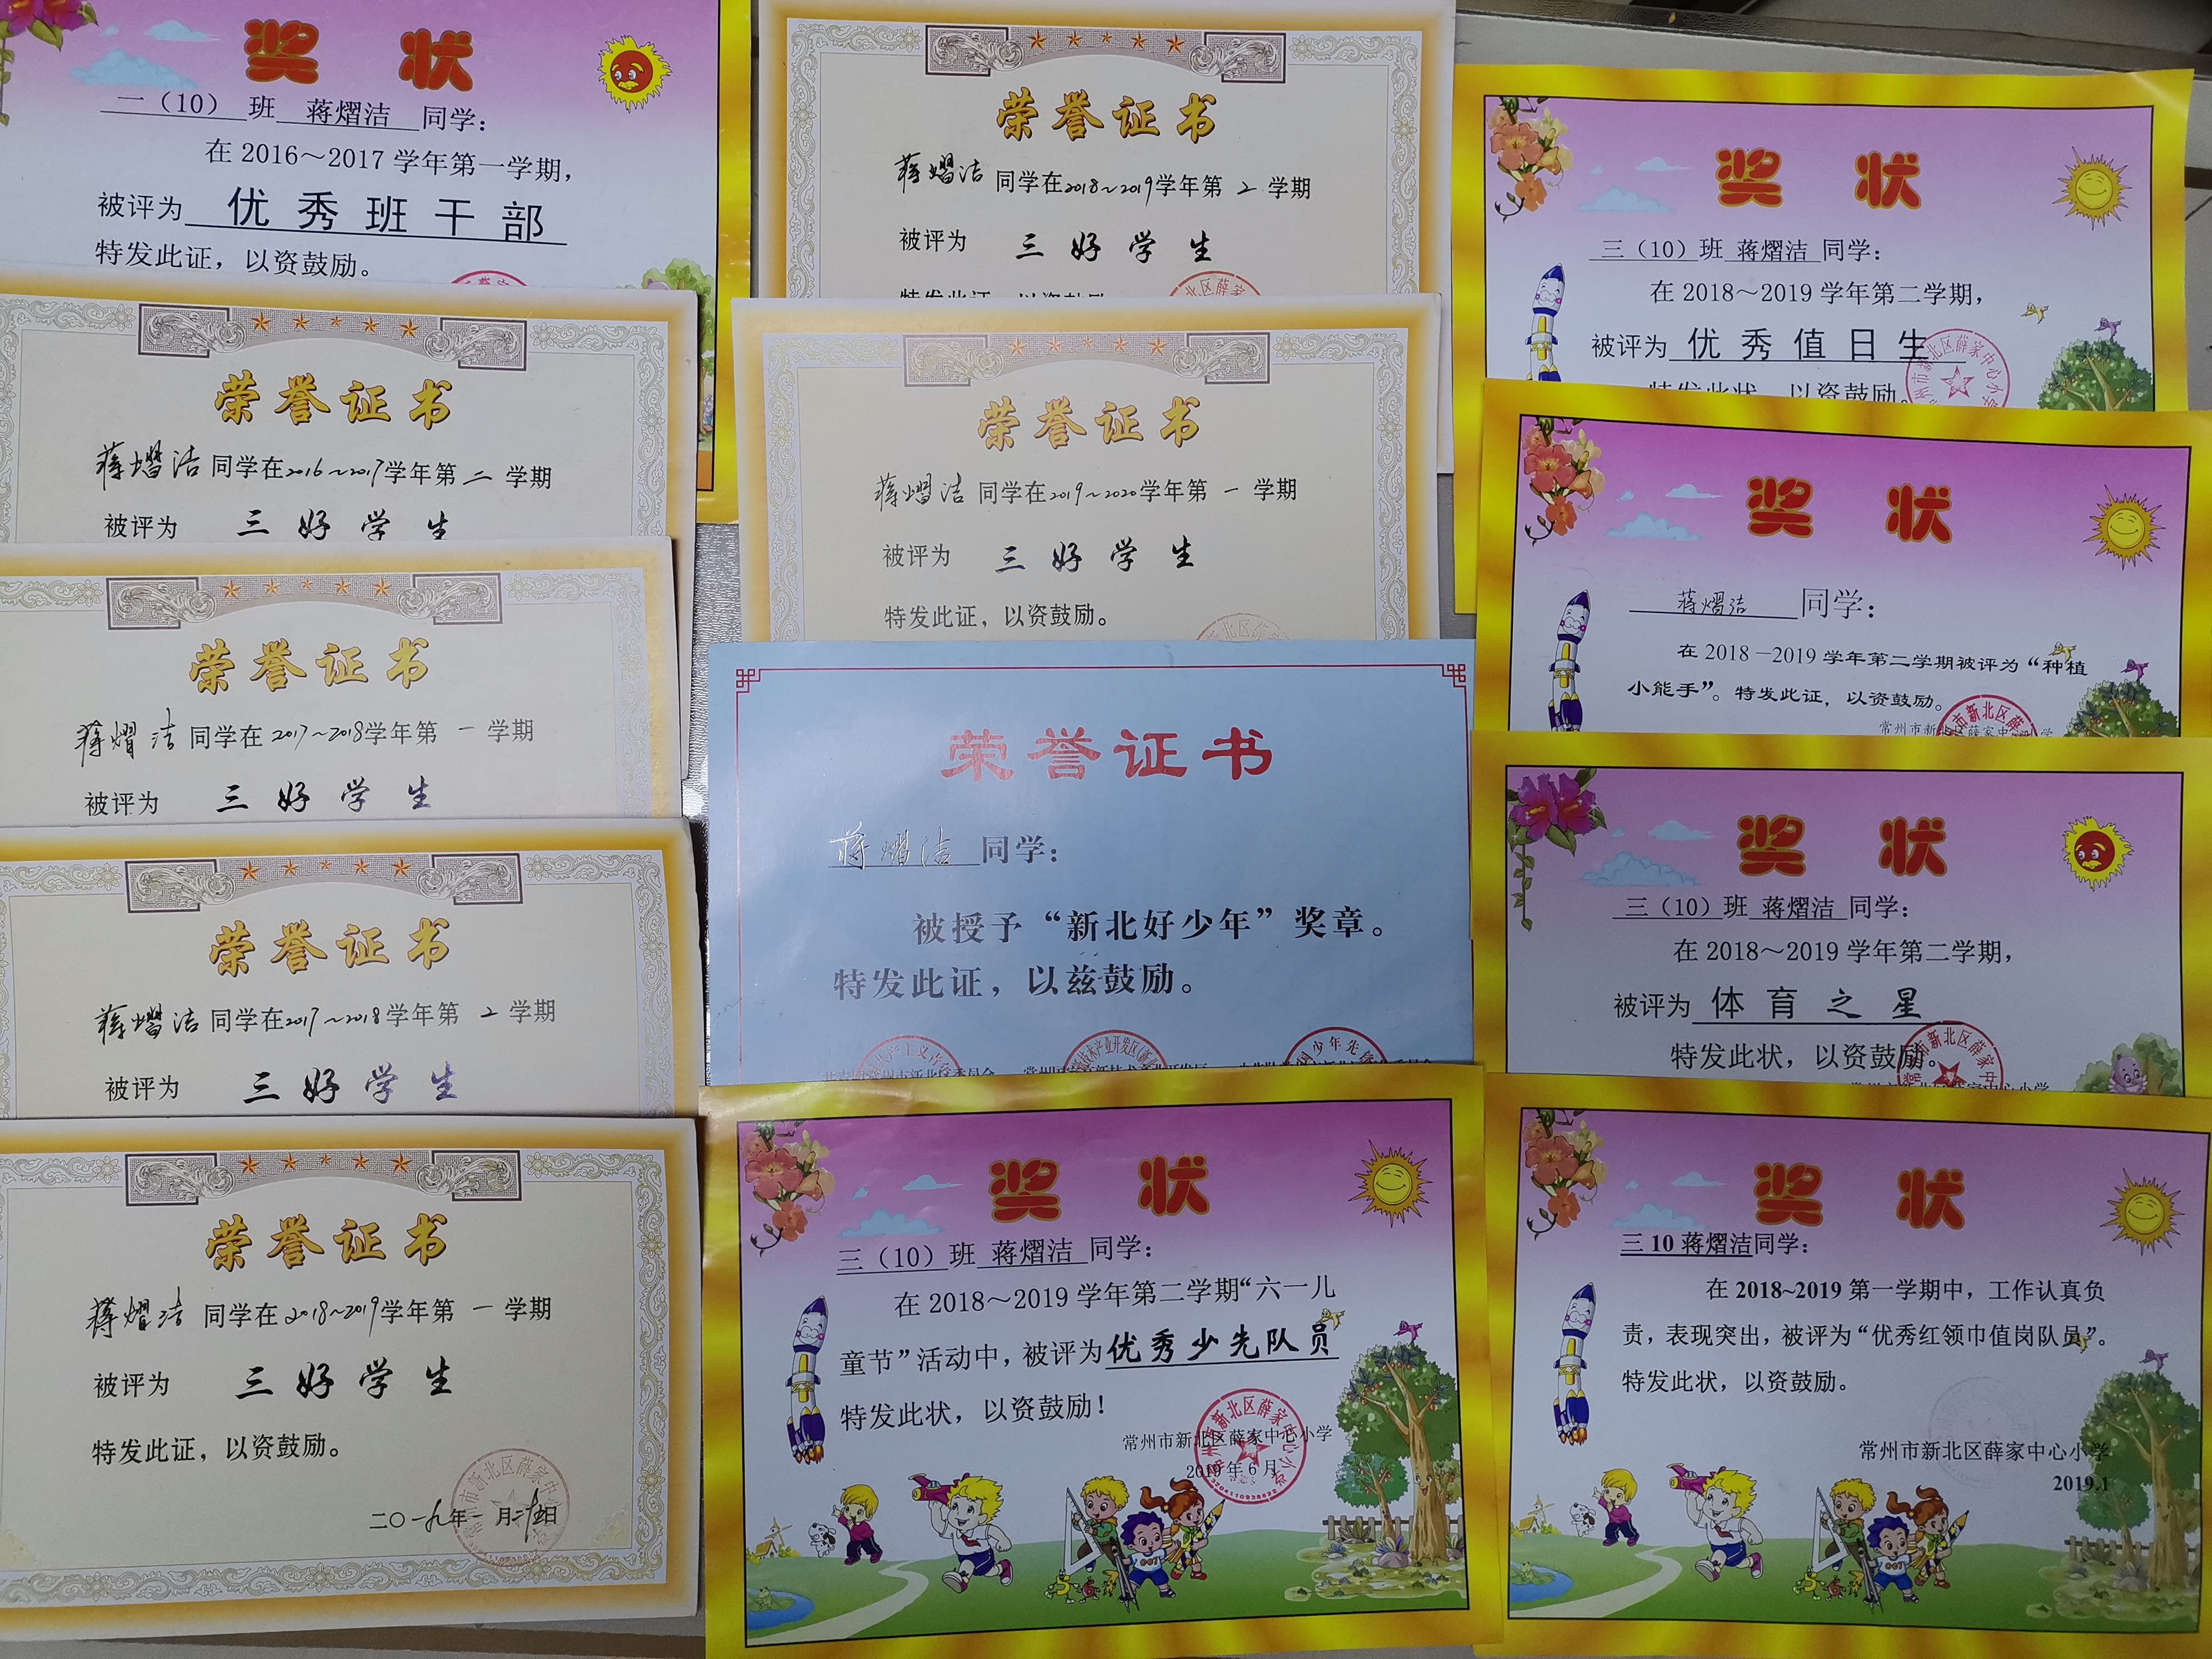 奖状
一（10）班 蒋熠洁 同学：
在 2016～2017 学年第一学期，
被评为 优秀班干部
特发此证，以资鼓励。
荣誉证书
蒋熠洁 同学在2016～2017学年第 二 学期
被评为 三好学生
荣誉证书
蒋熠洁 同学在 2017～2018学年第 一 学期
被评为 三好学生
荣誉证书
蒋熠洁 同学在2017～2018学年第 2 学期
被评为 三好学生
荣誉证书
蒋熠洁 同学在2018～2019学年第 一 学期
被评为 三好学生
特发此证，以资鼓励。
二〇一九年一月二十五日
荣誉证书
蒋熠洁 同学在2018～2019学年第 2 学期
被评为 三好学生
特发此证 以资鼓励
荣誉证书
蒋熠洁 同学在2019～2020学年第 一 学期
被评为 三好学生
特发此证，以资鼓励。
荣誉证书
蒋熠洁 同学：
被授予“新北好少年”奖章。
特发此证，以兹鼓励。
奖状
三（10）班 蒋熠洁 同学：
在 2018～2019 学年第二学期“六一儿
童节”活动中，被评为优秀少先队员
特发此状，以资鼓励！
常州市新北区薛家中心小学
2019 年 6 月
奖状
三（10）班 蒋熠洁 同学：
在 2018～2019 学年第二学期，
被评为 优秀值日生
特发此状，以资鼓励。
奖状
蒋熠洁 同学：
在 2018—2019 学年第二学期被评为“种植
小能手”。特发此证，以资鼓励。
常州市新北区薛家中心小学
奖状
三（10）班 蒋熠洁 同学：
在 2018～2019 学年第二学期，
被评为 体育之星
特发此状，以资鼓励。
常州市新北区薛家中心小学
奖状
三 10 蒋熠洁同学：
在 2018~2019 第一学期中，工作认真负
责，表现突出，被评为“优秀红领巾值岗队员”。
特发此状，以资鼓励。
常州市新北区薛家中心小学
2019.1